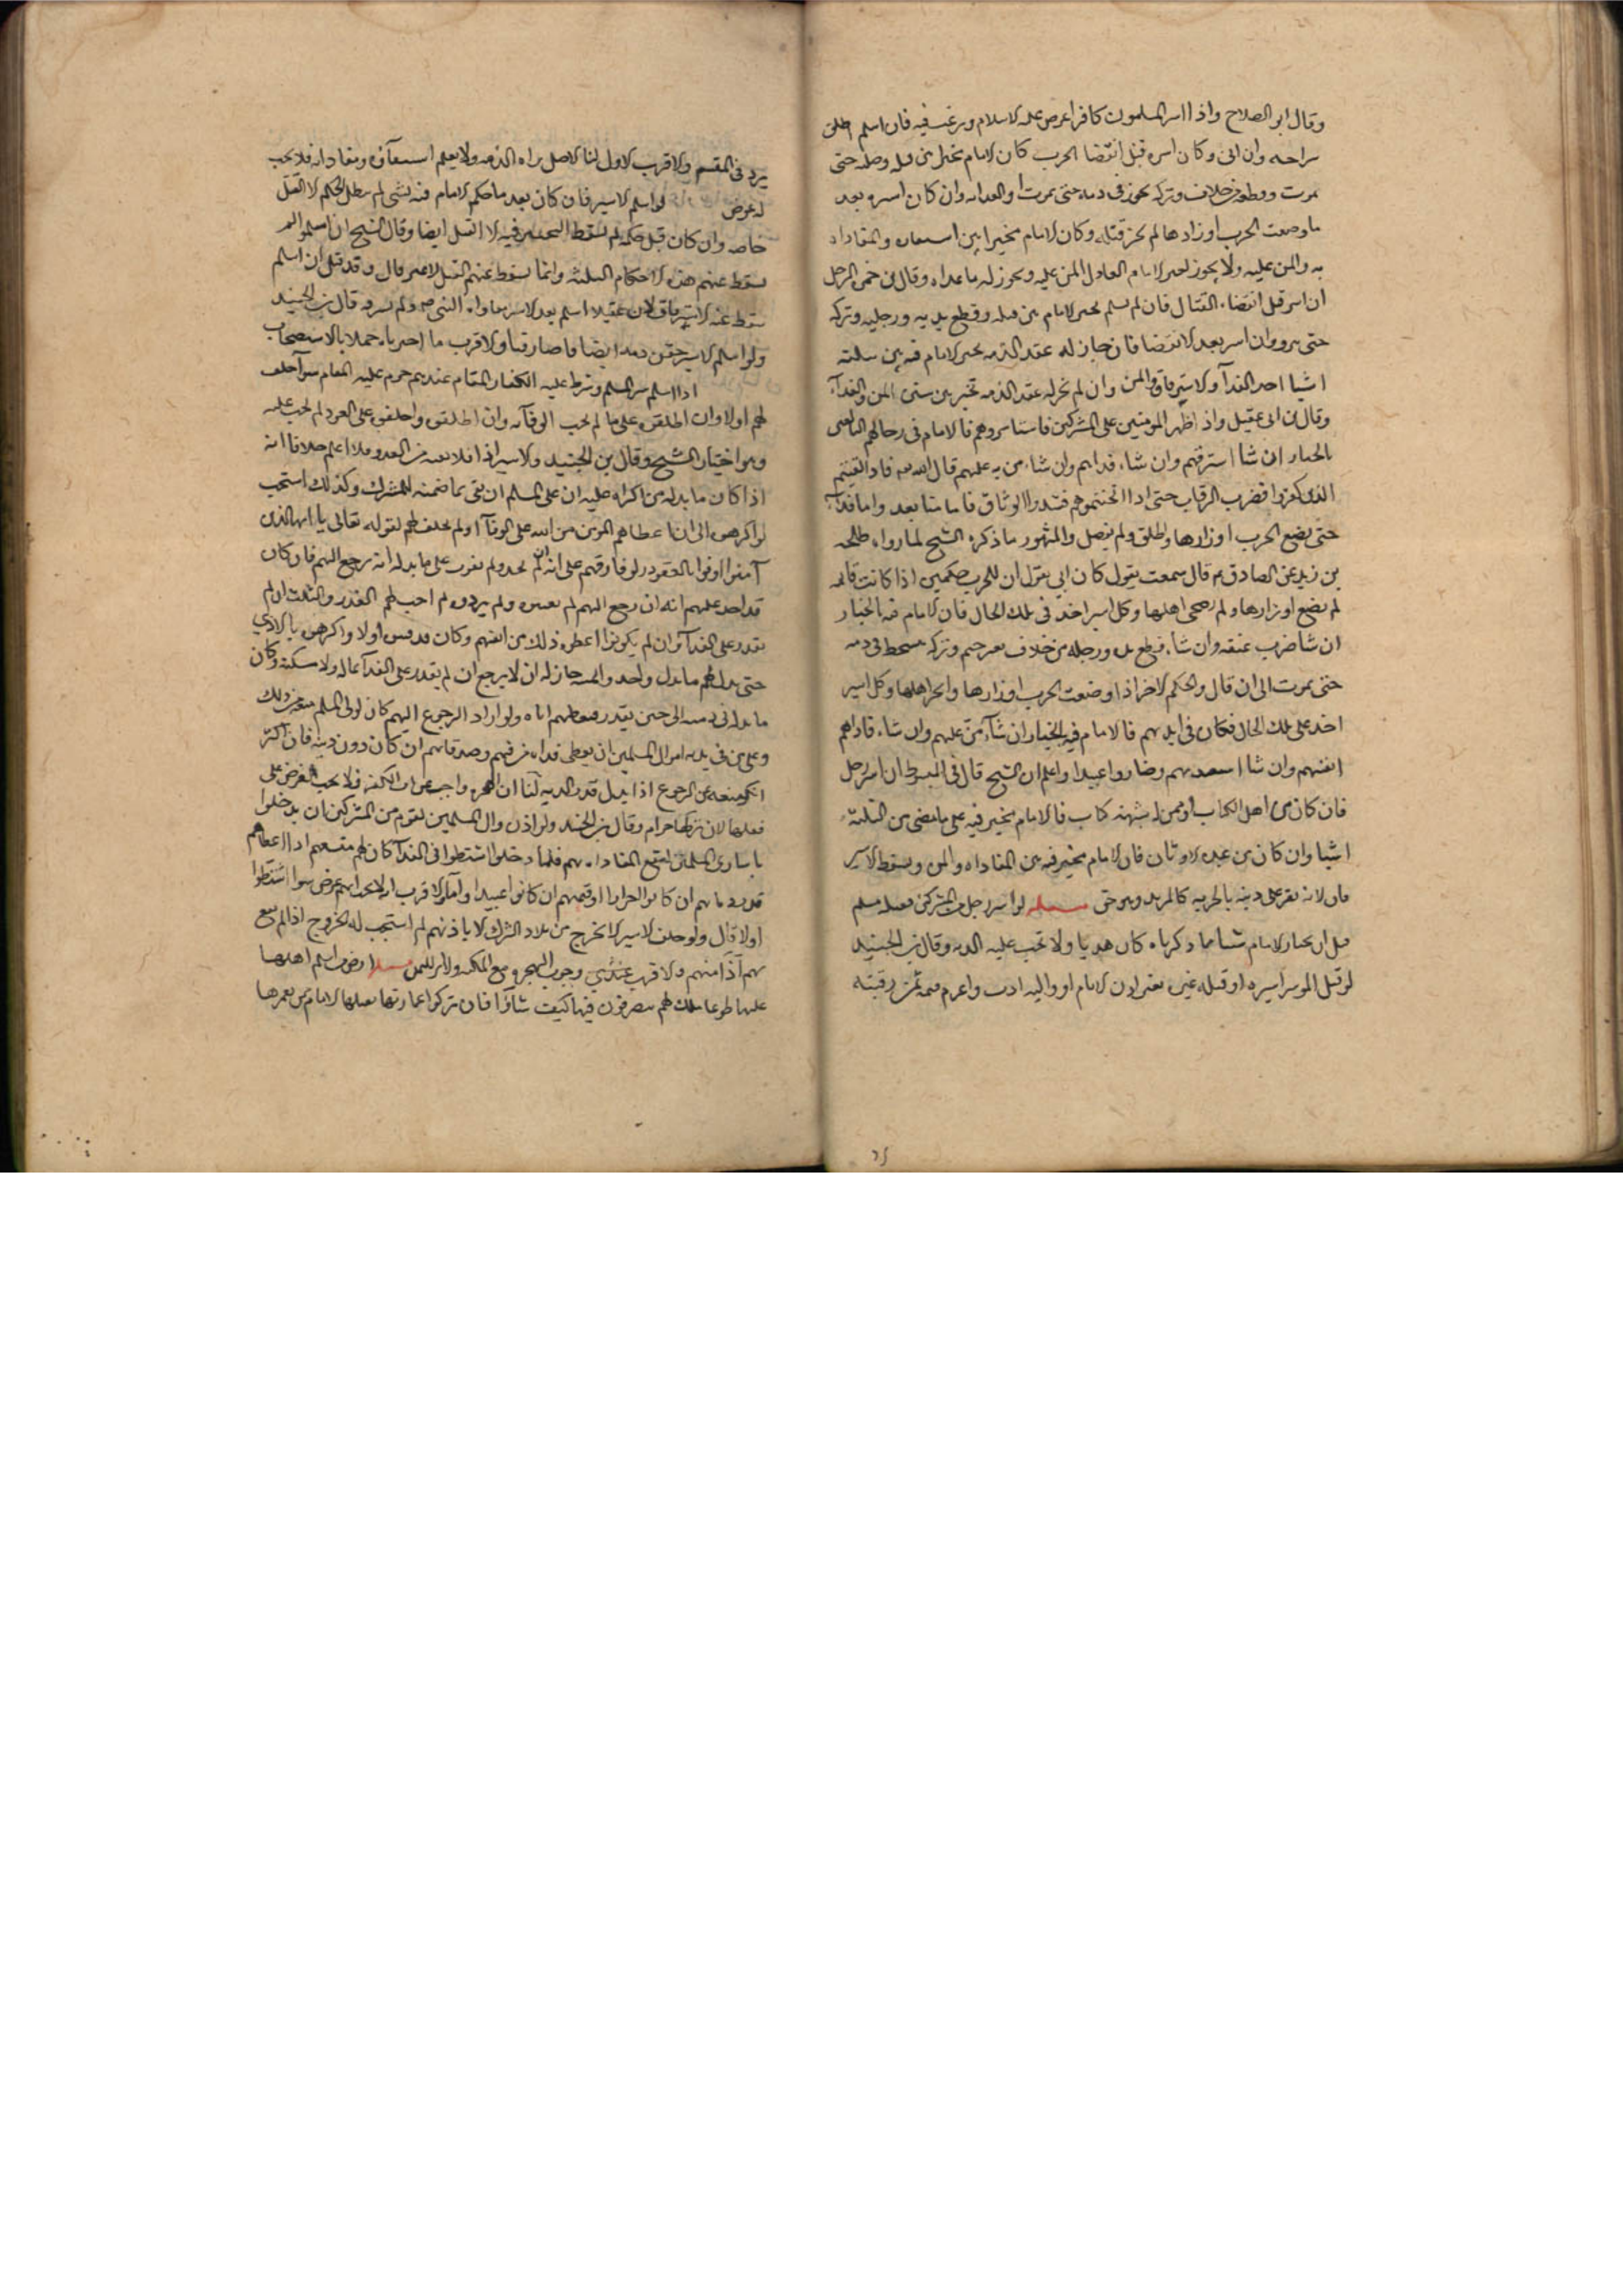 وقال ابو الصلاح واذا اسر المسلمون كافرا عرض عليه الاسلام ورغب فيه فان اسلم اطلق
سراحه وان ابى وكان اسره قبل انقضا الحرب كان الامام مخيرا بين قتله وصلبه حتى
يموت وقطعه من خلاف وتركه يخور في دمه حتى يموت او الفداء وان كان اسره بعد
ما وضعت الحرب اوزارها لم يجز قتله وكان الامام مخيرا بين استبعاده والمفاداة
به والمن عليه ولا يجوز لغير الامام العادل المن عليه ويجوز له ما عداه وقال بن حمزه الرجل
ان اسر قبل انقضاء القتال فان لم يسلم تخير الامام بين قتله وقطع يديه ورجليه وتركه
حتى ينزف وان اسر بعد الانقضا فان جاز له عقد الذمه تخير الامام فيه بين ثلثة
اشيا احد الفدآ والاسترقاق والمن وان لم يجز له عقد الذمه تخير بين شيئين المن والفدآء
وقال بن ابي عقيل واذا ظهر المومنين على المشركين فاستاسروهم فالامام في رجالهم البالغين
بالخيار ان شا استرقهم وان شاء فداهم وان شاء من عليهم قال الله تعه فاذا لقيتم
الذين كفروا فضرب الرقاب حتى اذا اثخنتموهم فشدوا الوثاق فاما منا بعد واما فداء
حتى يضع الحرب اوزارها واطلق ولم يفصل والمشهور ما ذكره الشيخ لما رواه طلحه
بن زيد عن الصادق ع قال سمعت يقول كان ابي يقول ان للحرب حكمين اذا كانت قائمه
لم يضع اوزارها ولم يضحى اهلها وكل اسير اخذ في تلك الحال فان الامام فيه بالخيار
ان شا ضرب عنقه وان شاء قطع يده ورجله من خلاف بغير حسم وتركه يتشحط في دمه
حتى يموت الى ان قال والحكم الاخر اذا وضعت الحرب اوزارها واثخن اهلها وكل اسير
اخذ على تلك الحال فكان في ايديهم فالامام فيه بالخيار ان شآء من عليهم وان شاء فاداهم
انفسهم وان شا استعبدهم وصاروا عبيدا واعلم ان الشيخ قال في المبسوط ان اسر رجل
فان كان من اهل الكتاب او ممن له شبهة كتاب فالامام مخير فيه على ما مضى من الثلثة
اشيا وان كان من عبدة الاوثان فان الامام مخير فيه بين المفاداه والمن ويسقط الاسترقاق
لانه يقر على دينه بالجزيه كالمرتد وهو حق مسئلة لو اسر رجل من المشركين فقتله مسلم
قبل ان يختار الامام شيئا مما ذكرناه كان هدرا ولا تجب عليه الديه وقال بن الجنيد
لو قتل الموسر اسيره او قتله غيره بغير اذن الامام او واليه ادب واغرم قيمة ثمن رقبته
يرد في المقسم والاقرب الاول لنا الاصل براه الذمه ولا يعلم استبعاده ومفاداته فلا يجب
له عوض لو اسلم الاسير فان كان بعد ما حكم الامام فيه بشى لم يبطل الحكم الا القتل
خاصه وان كان قبل حكمه لم يسقط التخيير فيه الا القتل ايضا وقال الشيخ ان اسلموا لم
يسقط عنهم هذه الاحكام الثلثة وانما يسقط عنهم القتل لا غير قال وقد قيل ان اسلم
سقط عنه الاسترقاق لان عقيلا اسلم بعد الاسر ففاداه النبي ص ولم يسترقه قال بن الجنيد
ولو اسلم الاسير حقن دمه ايضا فاصار فيا والاقرب ما اخترناه عملا بالاستصحاب
اذا اسلم اسر المسلم وشرط عليه الكفار المقام عندهم حرم عليه المقام سوآ حلف
لهم او لا وان اطلقوه على مال لم يجب الوفآء به وان اطلقوه واحلفوه على العود لم يجب عليه
وهو اختيار الشيخ وقال بن الجنيد والاسير اذا فدى نفسه من العدو فلا اعلم خلافا انه
اذا كان ما بذله من اكراه عليه ان على المسلم ان يفى بما ضمنه للمشرك وكذلك استحب
لو اكرهوه الى ان اعطاهم المومن من الله على الوفآ او لم يحلف لهم لقوله تعالى يا ايها الذين
آمنوا اوفوا بالعقود ولو فارقهم على انه ان لم يجد ولم يقدر على ما بذله انه يرجع اليهم فان كان
قد اخذ عليهم انه ان رجع اليهم لم يحبسوه ولم يردوه لم احب لهم الغدر والثالث ان لم
يقدر على الفدآ وان لم يكونوا اعطوه ذلك من انفسهم وكان قد حبس اولا واكرهوه بالاذى
حتى بذل لهم ما بذل واحد والمسه جاز له ان لا يرجع ان لم يقدر على الفدآ بماله ولا سكنه وكان
ما بذله في ذمته الى حين يقدر فيعطيهم اياه ولو اراد الرجوع اليهم كان لولى المسلم منعه من ذلك
وعلى من في يديه اموال المسلمين ان يعطى فداه من فيهم وصدقاتهم ان كان دون ديته فان اكثر
لم يكن منعه عن الرجوع اذا بذل قدر الديه لنا ان الهجره واجبه عن بلاد الكفر فلا يجب الغرض على
فعلها لان تركها حرام وقال بن الجنيد ولو اذن وال المسلمين لقوم من المشركين ان يدخلوا
باسارى المسلمين لتقع المفاداه بهم فلما دخلوا اشتطوا في الفدآ كان لهم منعهم اذا اعطاهم
قدر دياتهم ان كانوا احرارا او قيمتهم ان كانوا عبيدا واما والاقرب انه لا يجب لهم عوض سوا اشتطوا
او لا قال ولو حلف الاسير الا يخرج من بلاد الشرك الا باذنهم لم استحب له الخروج اذا لم يقع
بهم آذا منهم والاقرب عندي وجوب الهجره مع المكنه ولا اثر لليمين مسئلة ارض من اسلم اهلها
عليها طوعا ملك لهم يتصرفون فيها كيف شاؤا فان تركوا عمارتها يقبلها الامام من يعمرها